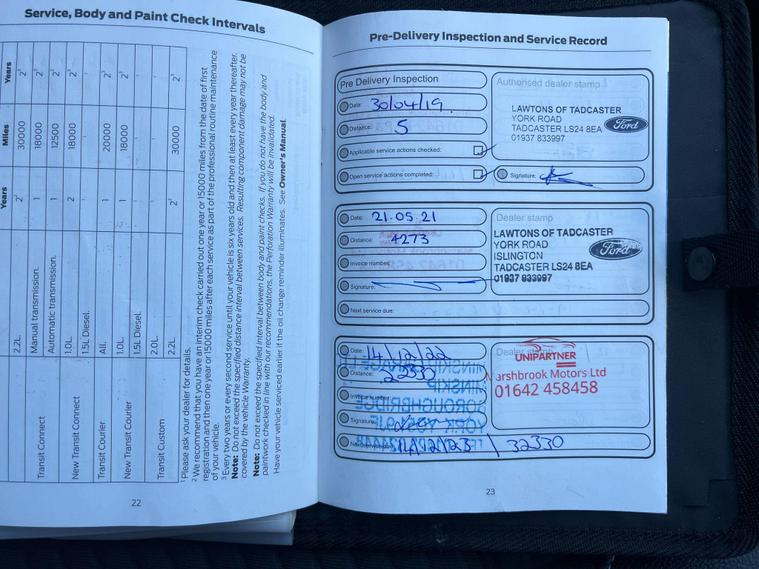 Service, Body and Paint Check Intervals
Years
Miles
Years
2.2L
2²
30000
2¹
Transit Connect
Manual transmission.
1
18000
2¹
Automatic transmission.
1
12500
2¹
New Transit Connect
1.0L
2
18000
2¹
1.5L Diesel.
Transit Courier
All.
1
20000
2¹
New Transit Courier
1.0L
1
18000
2¹
1.5L Diesel.
Transit Custom
2.0L
2.2L
2²
30000
2¹
¹ Please ask your dealer for details.
² We recommend that you have an interim check carried out one year or 15000 miles from the date of first
registration and then one year or 15000 miles after each service as part of the professional routine maintenance
of your vehicle.
³ Every two years or every second service until your vehicle is six years old and then at least every year thereafter.
Note: Do not exceed the specified distance interval between services. Resulting component damage may not be
covered by the vehicle Warranty.
Note: Do not exceed the specified interval between body and paint checks. If you do not have the body and
paintwork checked in line with our recommendations, the Perforation Warranty will be invalidated.
Have your vehicle serviced earlier if the oil change reminder illuminates. See Owner's Manual.
22
Pre-Delivery Inspection and Service Record
Pre Delivery Inspection
Date: 30/04/19.
Distance: 5
Applicable service actions checked:
Open service actions completed:
Authorised dealer stamp
LAWTONS OF TADCASTER
YORK ROAD
TADCASTER LS24 8EA
01937 833997
Ford
Signature:
Date: 21.05.21
Distance: 4273
Invoice number:
Signature:
Next service due:
Dealer stamp
LAWTONS OF TADCASTER
YORK ROAD
ISLINGTON
TADCASTER LS24 8EA
01937 833997
Ford
Date: 14/12/22
Distance: 22330
Invoice number:
Signature:
14/12/23 / 32330
Dealer
UNIPARTNER
arshbrook Motors Ltd
01642 458458
23